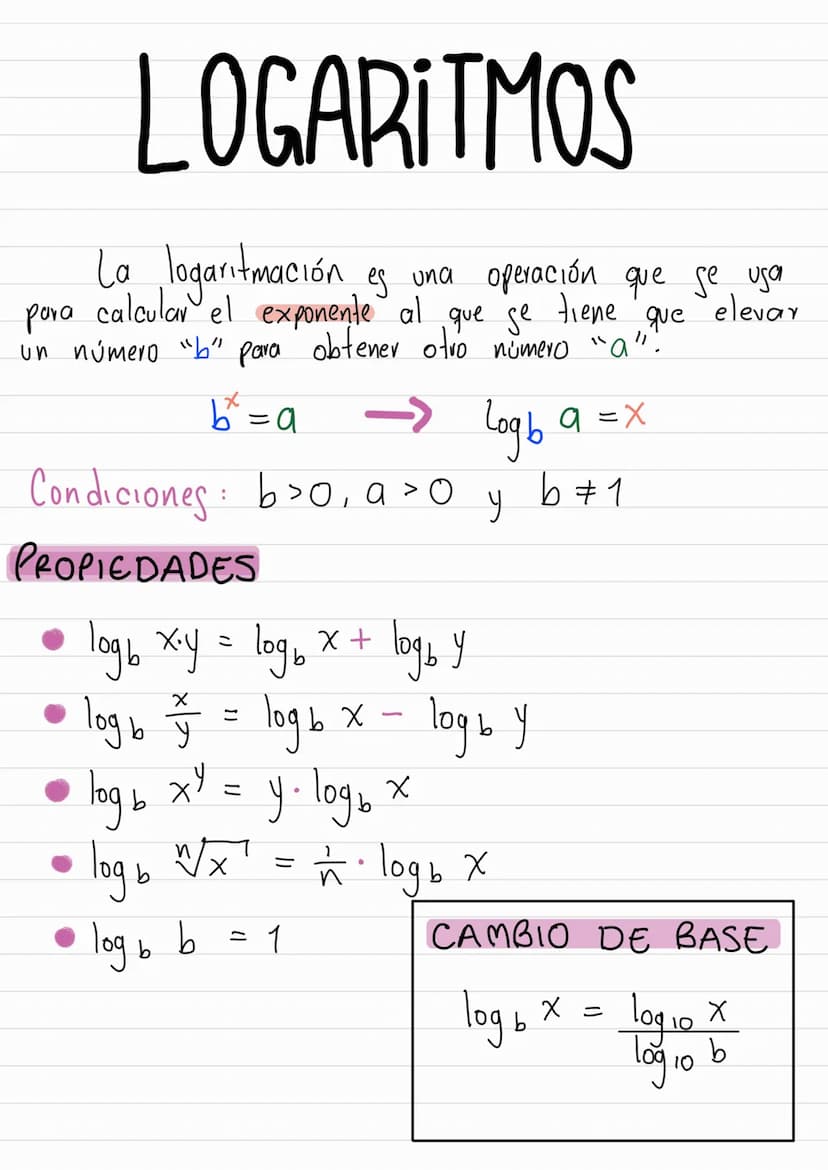 LOGARiTMOS
La logaritmación es una operación que se usa
para calcular el exponente al que se tiene que elevar
un número "b" para obtener otro número "a".
b^x = a → Log_b a = x
Condiciones: b>0, a>0 y b≠1
PROPIEDADES
• log_b x·y = log_b x + log_b y
• log_b x/y = log_b x - log_b y
• log_b x^y = y · log_b x
• log_b ⁿ√x = 1/n · log_b x
• log_b b = 1
CAMBIO DE BASE
log_b x = log_10 x / log_10 b